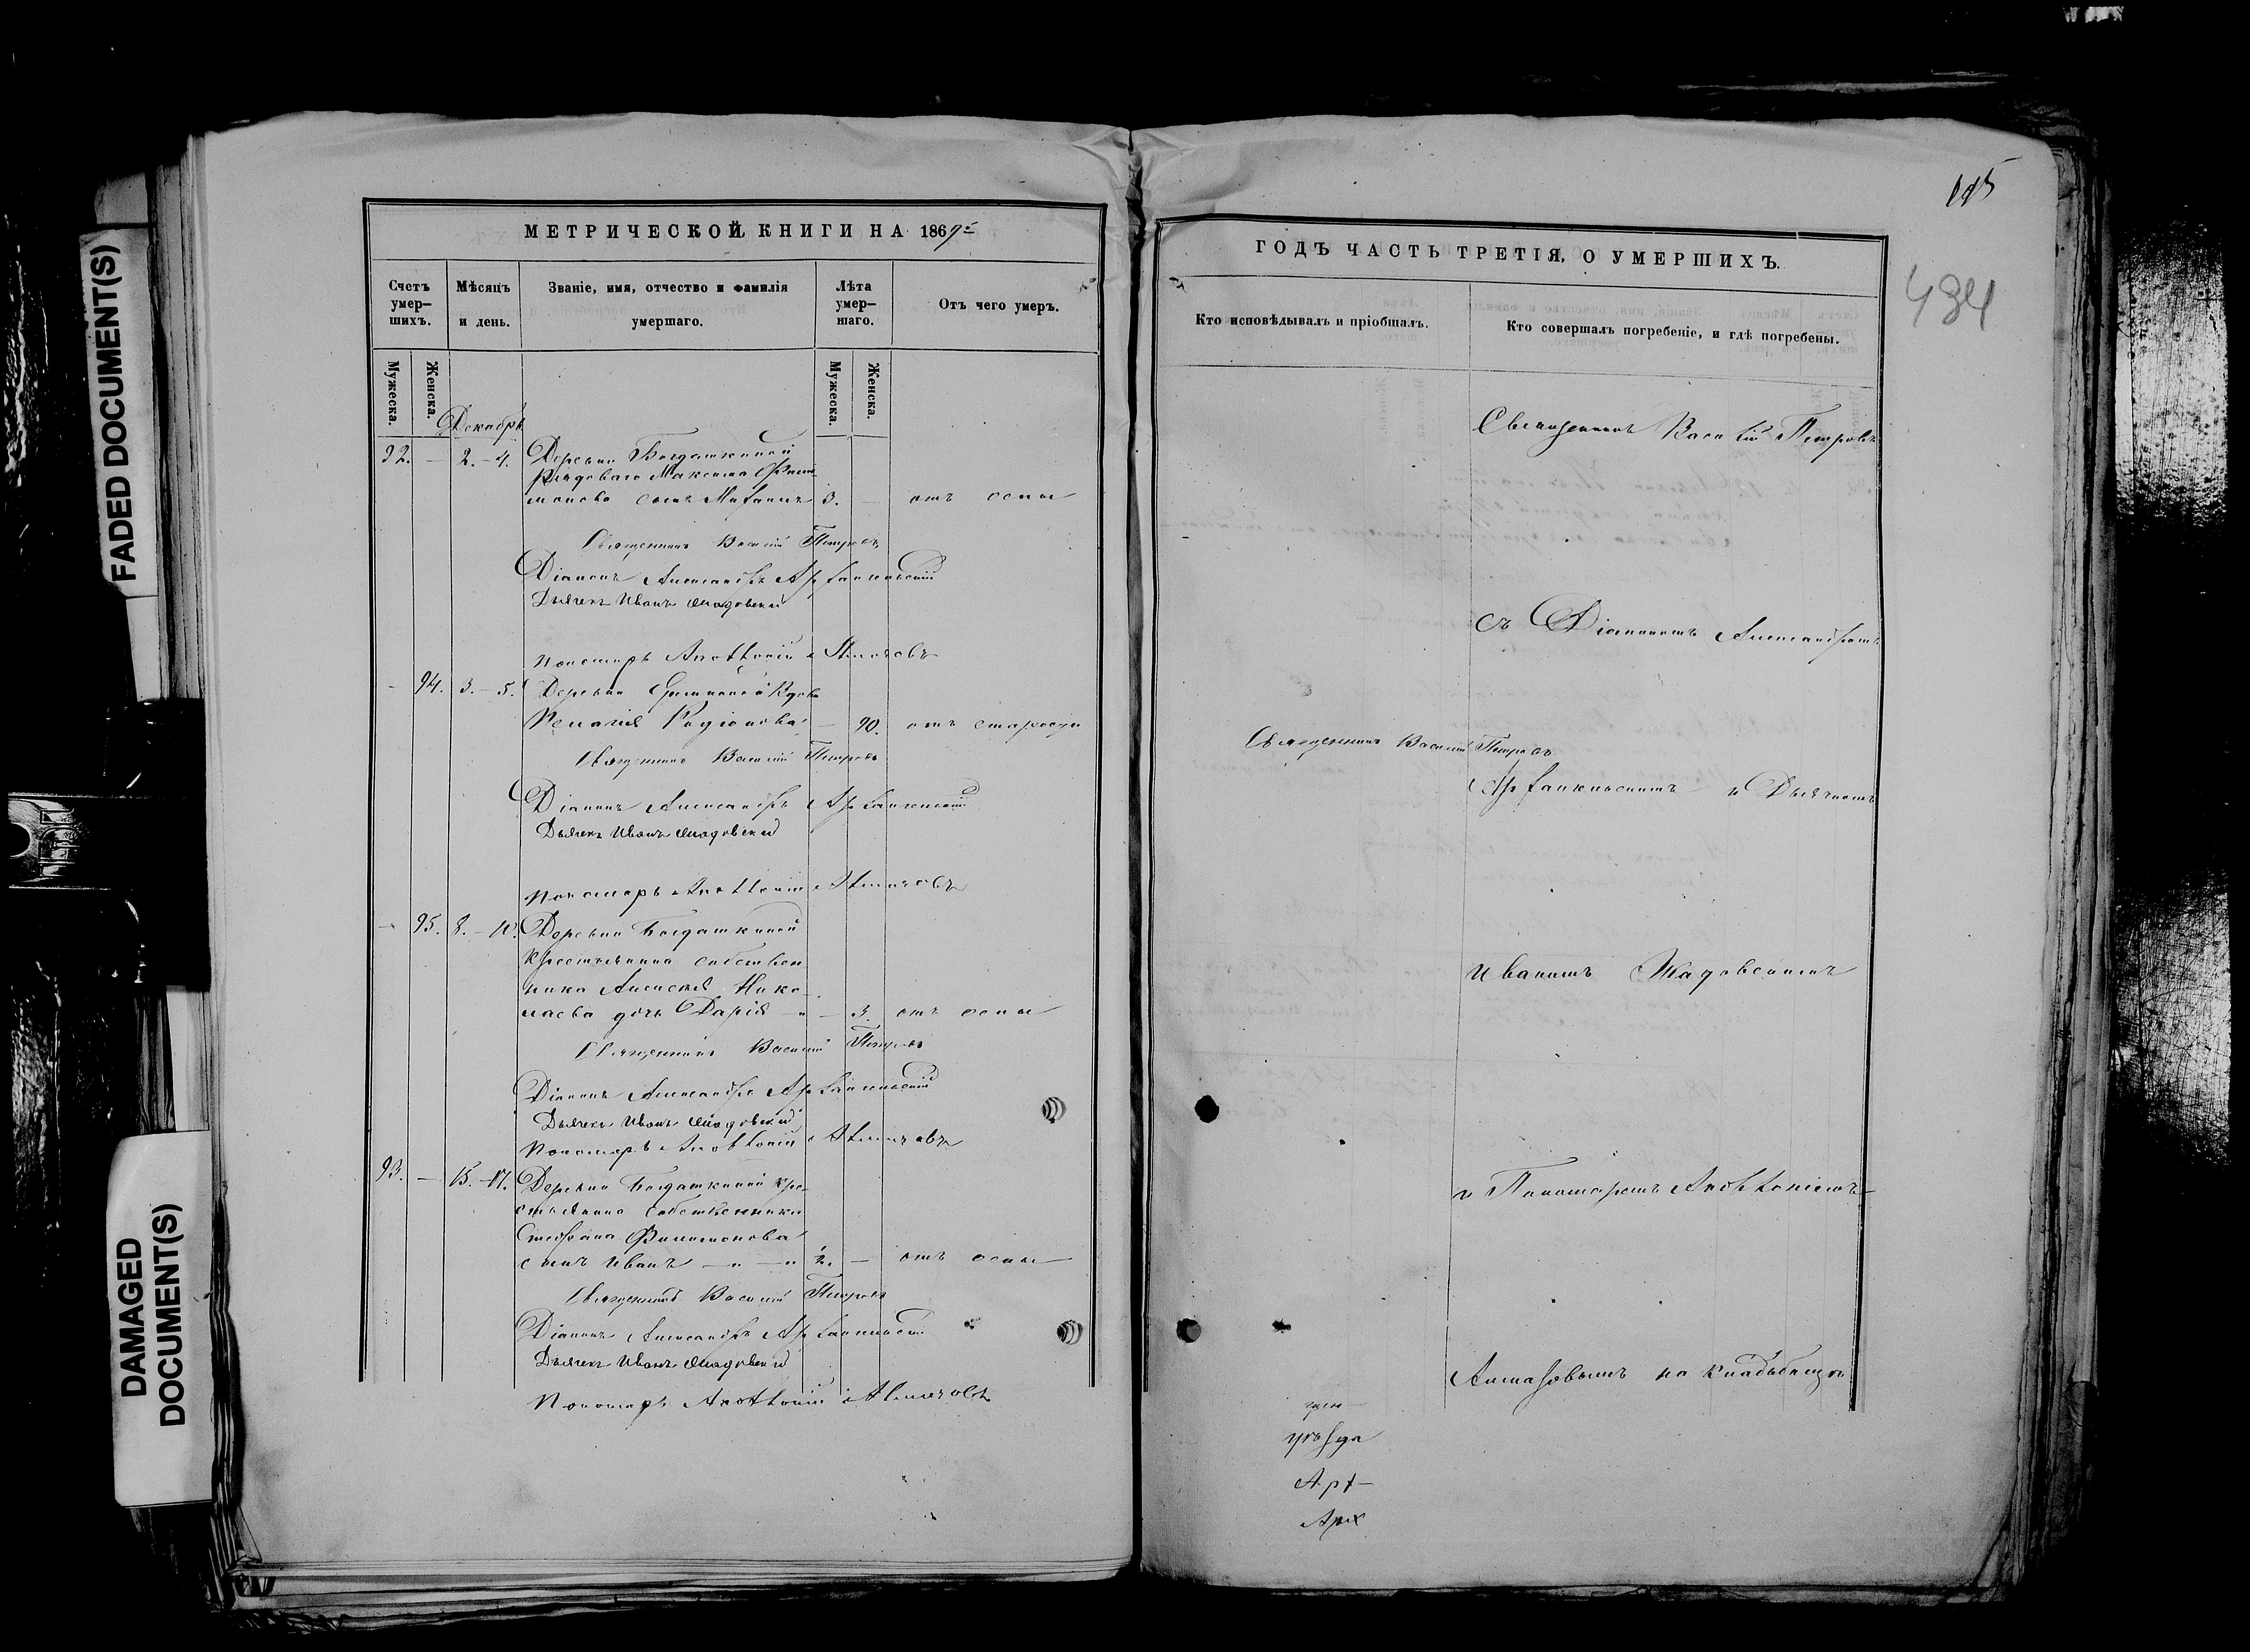 FADED DOCUMENT(S)
DAMAGED DOCUMENT(S)
МЕТРИЧЕСКОЙ КНИГИ НА 1869й
Счетъ умер-шихъ.
Мѣсяцъ и день.
Званіе, имя, отчество и фамилія умершаго.
Лѣта умер-шаго.
Отъ чего умеръ.
Мужеска.
Женска.
Мужеска.
Женска.
Декабрь
92. — 2.-4. Деревни Богдашкиной
рядоваго Максима Фили-
монова сынъ 3. — отъ оспы
Священникъ Василій Петровъ
Діаконъ Александръ Архангельскій
Дьячекъ Иванъ Жадовскій
Пономарь
— 94. 3.-5. Деревни вдова
Родіонова — 90. отъ старости
Священникъ Василій Петровъ
Діаконъ Александръ Архангельскій
Дьячекъ Иванъ Жадовскій
Пономарь
— 95. 8.-10. Деревни Богдашкиной
крестьянина собствен
ника Алексѣя Нико-
лаева дочь Дарія — 3. отъ оспы
Священникъ Василій Петровъ
Діаконъ Александръ Архангельскій
Дьячекъ Иванъ Жадовскій
Пономарь
93. — 15.-17. Деревни Богдашкиной кре-
стьянина собственника
Стефана Филимонова
сынъ Иванъ ½. — отъ оспы
Священникъ Василій Петровъ
Діаконъ Александръ Архангельскій
Дьячекъ Иванъ Жадовскій
Пономарь
484
ГОДЪ ЧАСТЬ ТРЕТІЯ, О УМЕРШИХЪ.
Кто исповѣдывалъ и пріобщалъ.
Кто совершалъ погребеніе, и гдѣ погребены.
Священникъ Василій Петровъ
съ Діакономъ Александромъ
Священникъ Василій Петровъ
Архангельскимъ и Дьячкомъ
Иваномъ Жадовскимъ
и Пономаремъ
Алмазовымъ на кладбищѣ
уѣзда
Арх
Арх